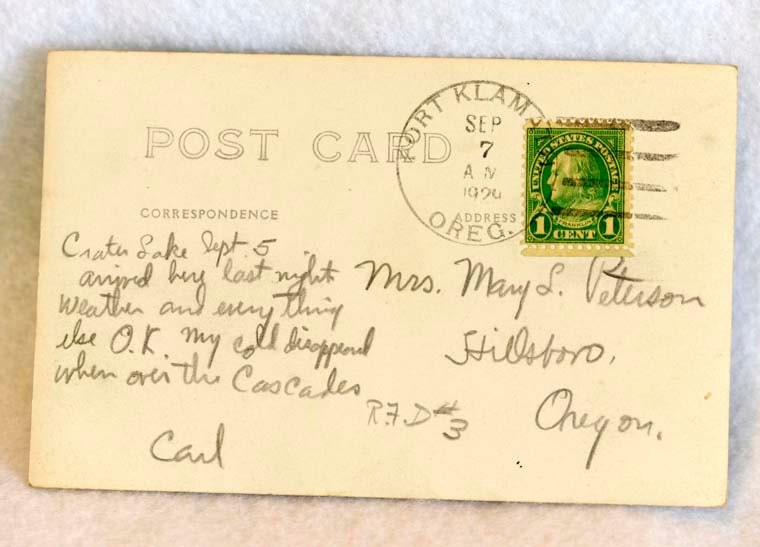 POST CARD
FORT KLAM
SEP
7
A M
OREG.
UNITED STATES POSTAGE
FRANKLIN
1 CENT 1
CORRESPONDENCE
ADDRESS
Crater Lake Sept. 5
arrived here last night
weather and every thing
else O.K. My cold disappeared
when over the Cascades
Carl
Mrs. Mary L. Peterson
Hillsboro,
R.F.D #3
Oregon.